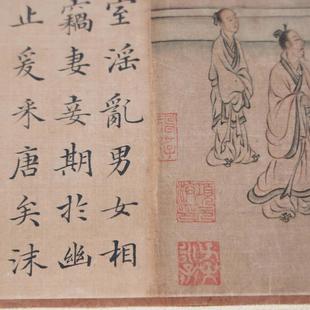 室淫亂男女相
竊妻妾期於幽
止爰采唐矣沬